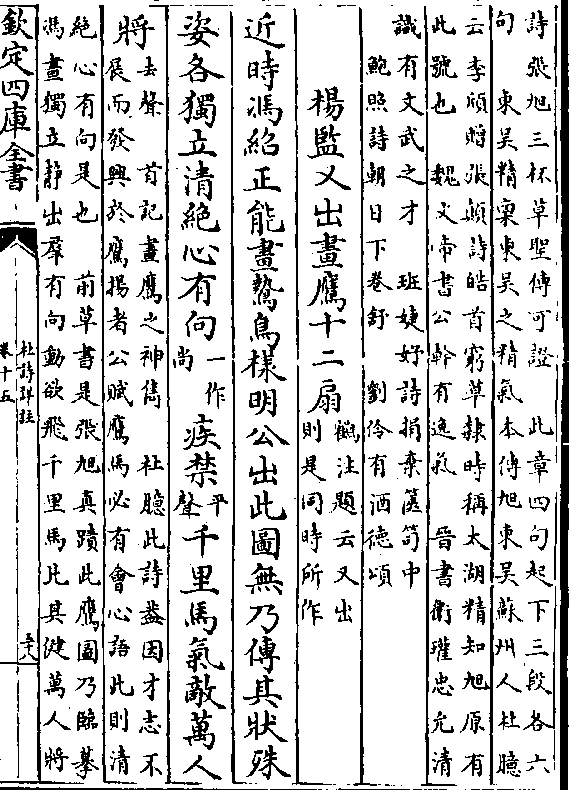 詩張旭三杯草聖傳可證　此章四句起下三段各六
句　東吳精稟東吳之精氣本傳旭東吳蘇州人杜臆
云李頎贈張顛詩皓首窮草隸時稱太湖精知旭原有
此號也　魏文帝書公幹有逸氣　晉書衛瓘忠允清
識有文武之才　班婕妤詩捐棄篋笥中
鮑照詩朝日下卷舒　劉伶有酒德頌
楊監又出畫鷹十二扇
鶴注題云又出
則是同時所作
近時馮紹正能畫鷙鳥樣明公出此圖無乃傳其狀殊
姿各獨立清絶心有向一作尚疾禁平聲千里馬氣敵萬人
將去聲　首記畫鷹之神雋　杜臆此詩葢因才志不
展而發興於鷹揚者公賦鷹馬必有會心語此則清
絶心有向是也　前草書是張旭真蹟此鷹圖乃臨摹
馮畫獨立靜出羣有向動欲飛千里馬比其健萬人將
欽定四庫全書
杜詩詳註
卷十五